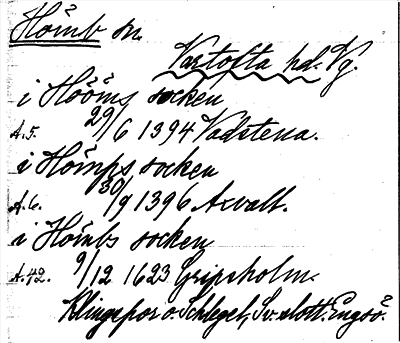 Hömb sn.
Vartofta hd. Vg.
i Hööms socken
A.5. 29/6 1394 Vadstena.
i Hömps socken
A.6. 30/9 1396 Axvall.
i Hömbs socken
A.42. 9/12 1623 Gripsholm.
Klingspor o. Schlegel, Sv. slott. Engsö.